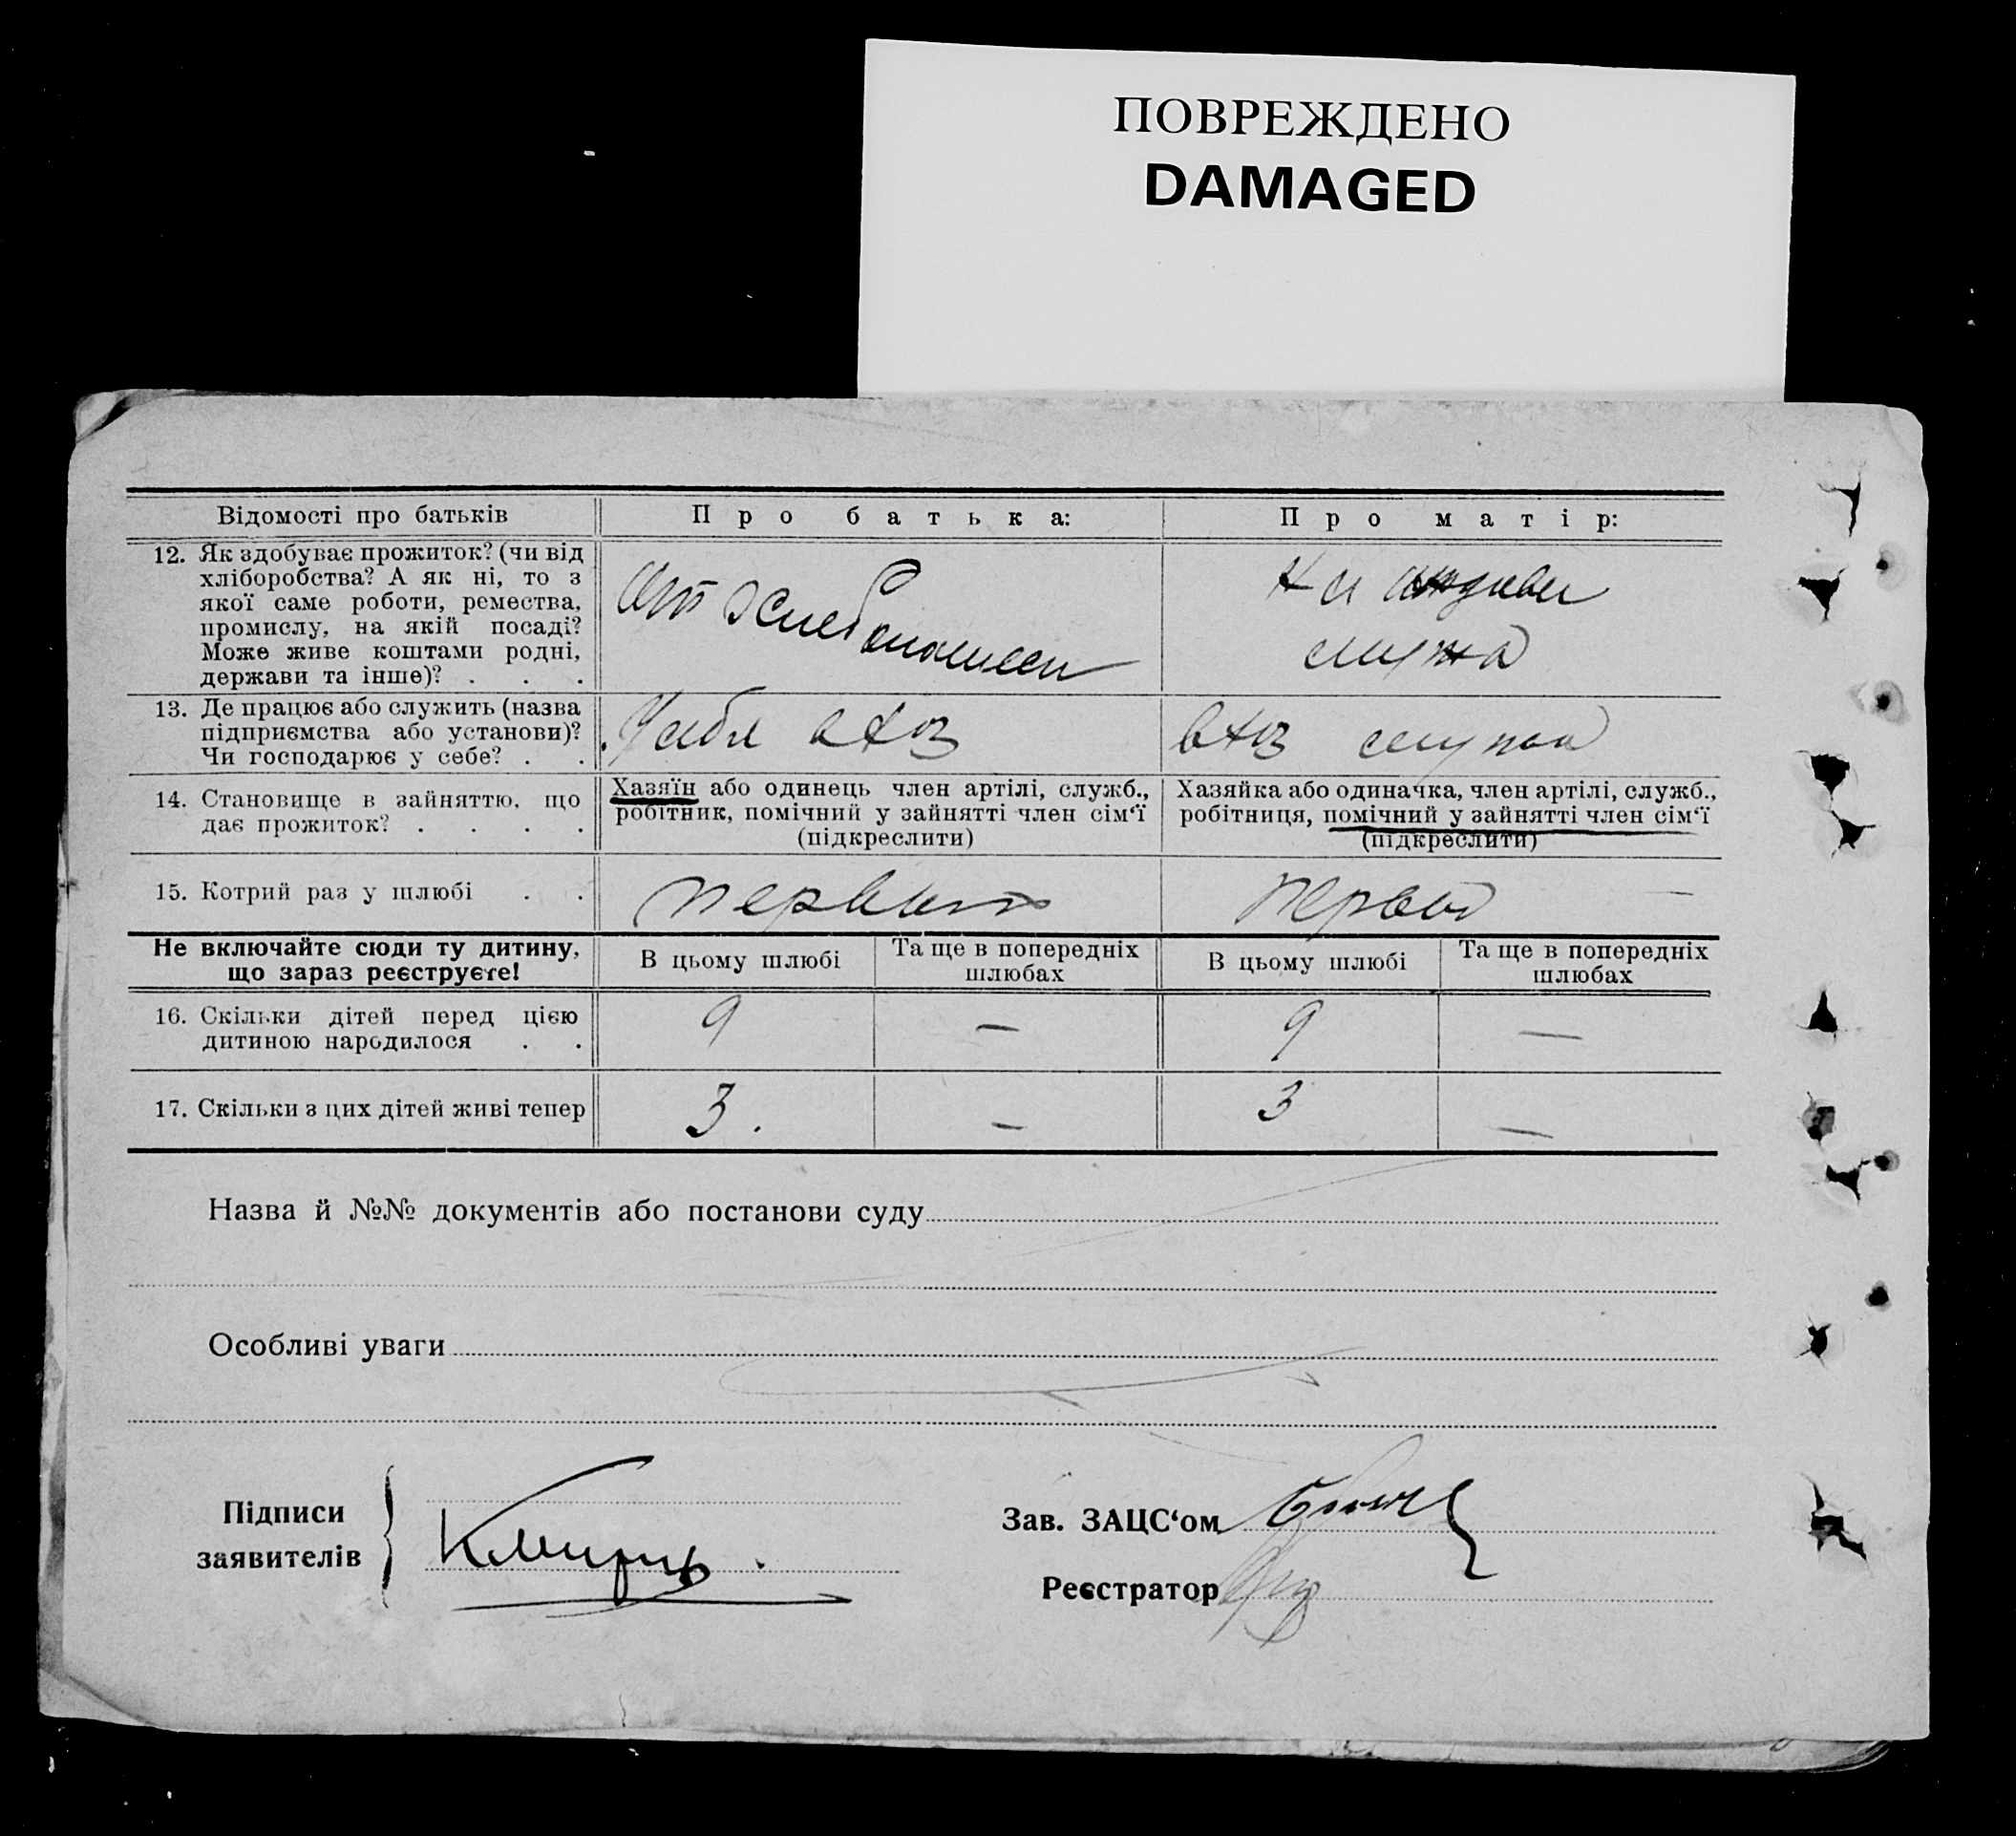 ПОВРЕЖДЕНО
DAMAGED
Відомості про батьків
Про батька:
Про матір:
12. Як здобуває прожиток? (чи від
хліборобства? А як ні, то з
якої саме роботи, ремества,
промислу, на якій посаді?
Може живе коштами родні,
держави та інше)? . . .
От хлебопашеси
На
мужа
13. Де працює або служить (назва
підприємства або установи)?
Чи господарює у себе? . .
У себя
мужа
14. Становище в зайняттю, що
дає прожиток? . . . .
Хазяїн або одинець член артілі, служб.,
робітник, помічний у зайнятті член сім‘ї
(підкреслити)
Хазяйка або одиначка, член артілі, служб.,
робітниця, помічний у зайнятті член сім‘ї
(підкреслити)
15. Котрий раз у шлюбі . .
первый
первый
Не включайте сюди ту дитину,
що зараз реєструєте!
В цьому шлюбі
Та ще в попередніх
шлюбах
В цьому шлюбі
Та ще в попередніх
шлюбах
16. Скільки дітей перед цією
дитиною народилося . .
9
—
9
—
17. Скільки з цих дітей живі тепер
3.
—
3
—
Назва й №№ документів або постанови суду
Особливі уваги
Підписи
заявителів
Зав. ЗАЦС‘ом
Реєстратор